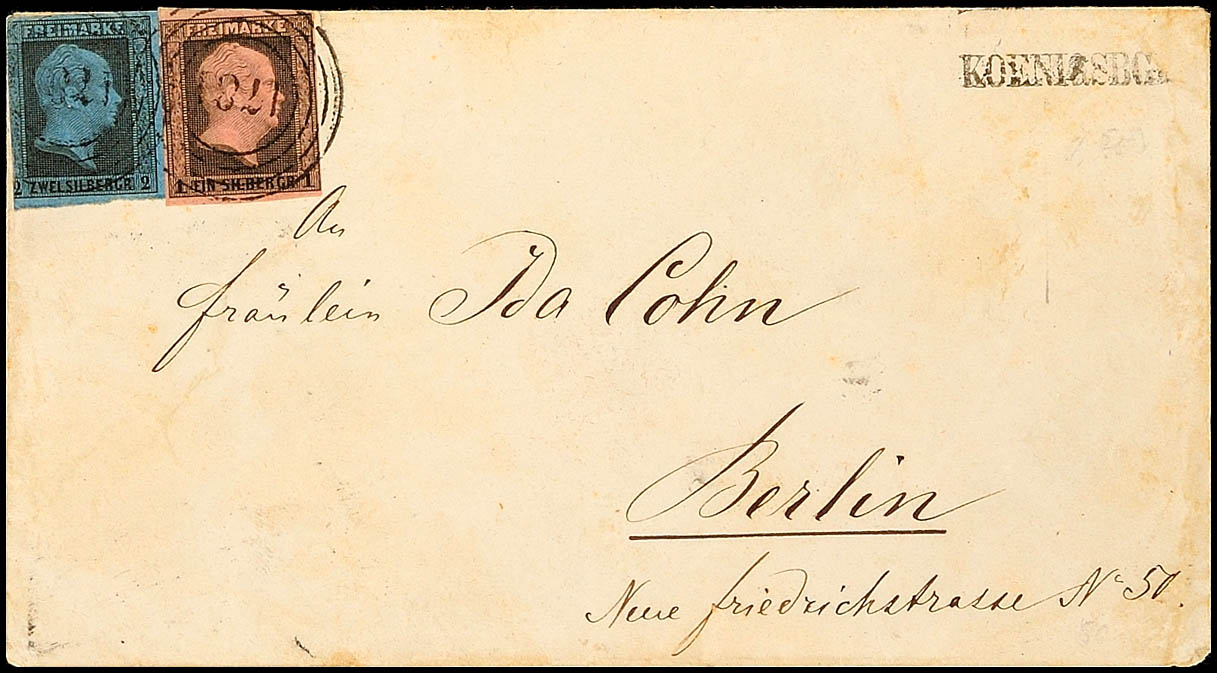 FREIMARKE
2 ZWEI SILBERGR. 2
FREIMARKE
1 EIN SILBERGR. 1
321
KOENIGSBG.
An
Fräulein Ida Cohn
Berlin
Neue Friedrichstrasse No 50.